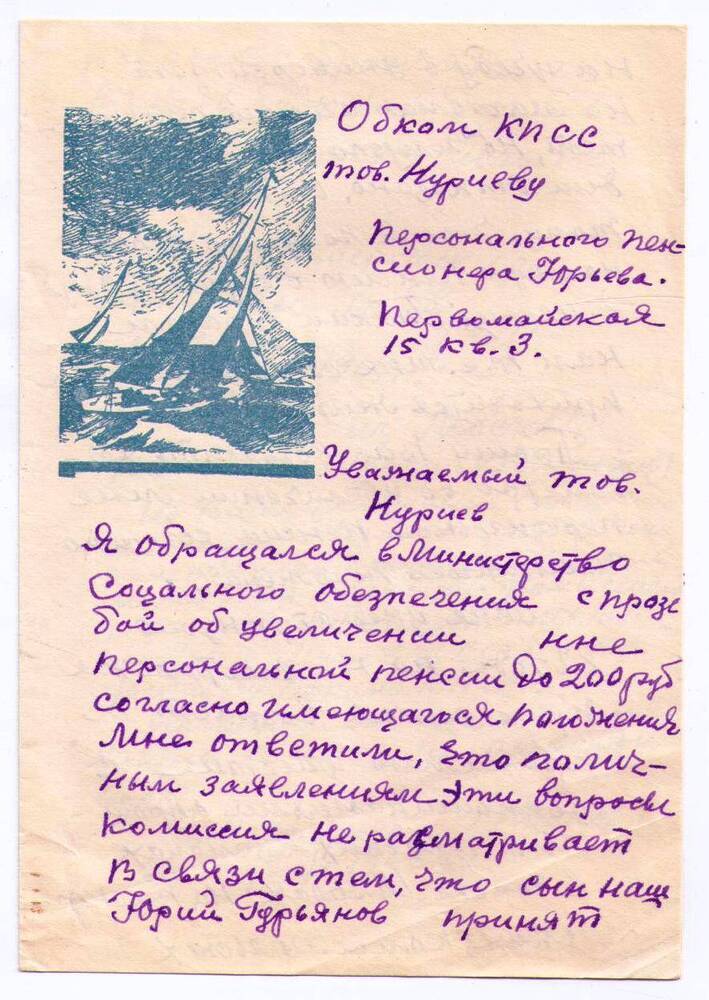 Обком КПСС
тов. Нуриеву
Персонального пен-
сионера Юрьева.
Первомайская
15 кв. 3.
Уважаемый тов.
Нуриев
Я обращался в Министерство
Социального обезпечения с прозь
бой об увеличении мне
персональной пенсии до 200 руб
согласно имеющагося положения
Мне ответили, что по лич-
ным заявлениям эти вопросы
комиссия не разсматривает
В связи с тем, что сын наш
Юрий Гурьянов принят